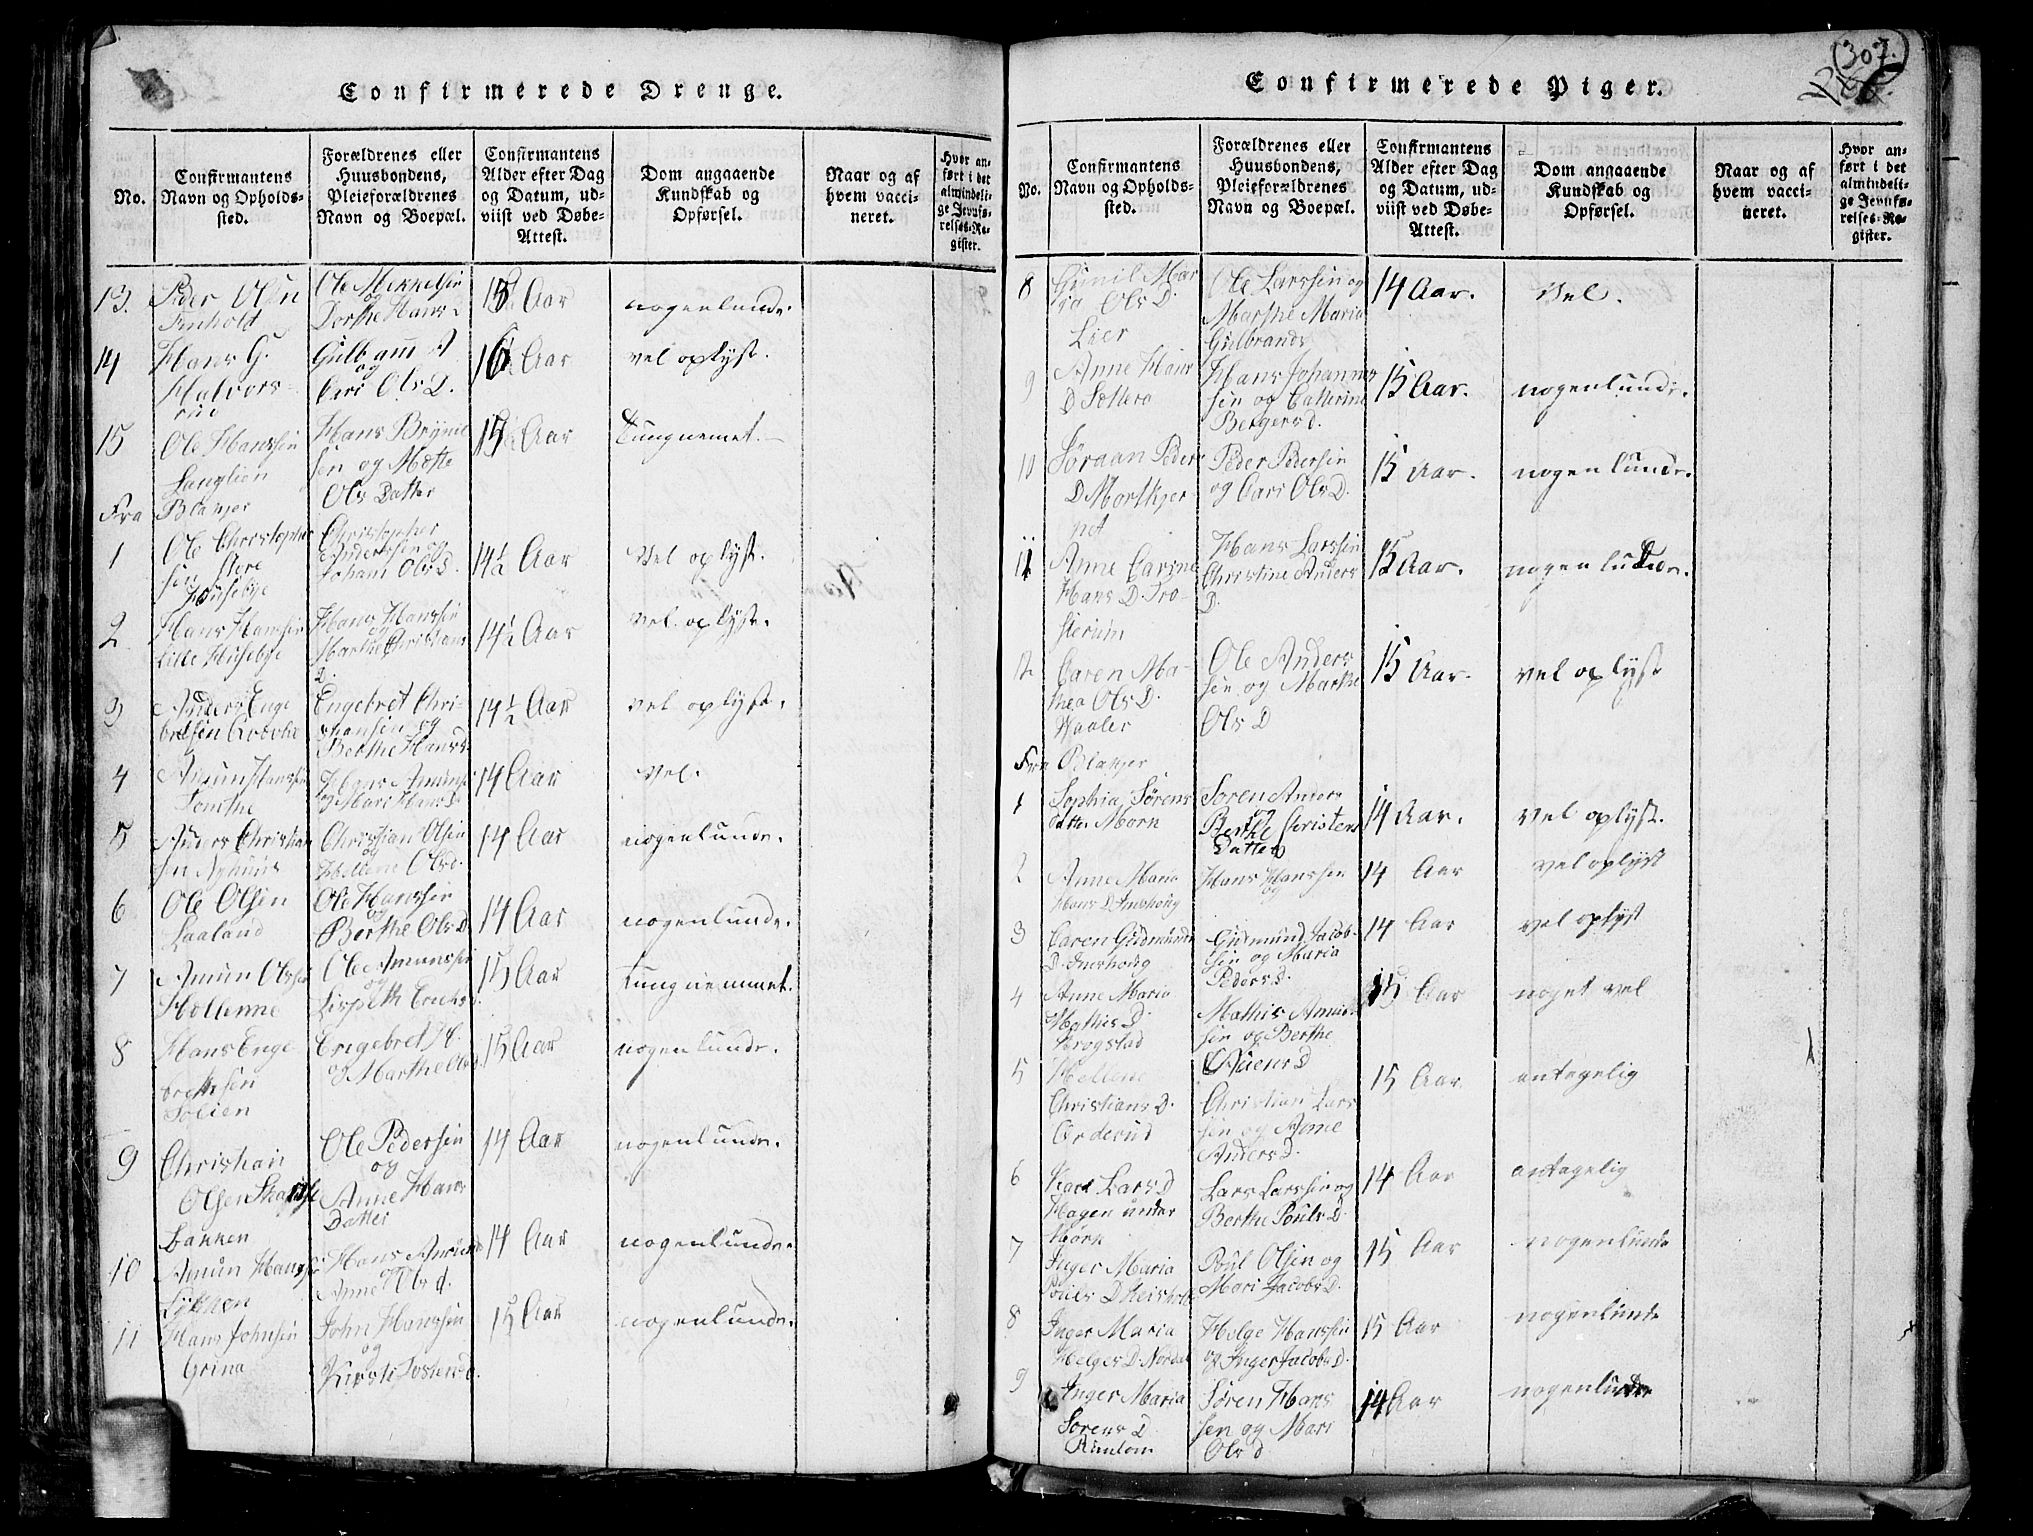 Confirmerede Drenge.
No.
Confirmantens
Navn og Opholds-
sted.
Forældrenes eller
Huusbondens,
Pleieforældrenes
Navn og Boepæl.
Confirmantens
Alder efter Dag
og Datum, ud-
viist ved Døbe-
Attest.
Dom angaaende
Kundskab og
Opførsel.
Naar og af
hvem vacci-
neret.
Hvor an-
ført i det
almindeli-
ge Jevnfø-
relses-Re-
gister.
13. Peder Olsen
Ole Mikkelsen
og
Dorthe Hans
15 Aar
nogenlunde.
14 Hans G.
Halvors-
rud
og
Cari Ols D.
16 Aar
vel oplyst.
15 Ole Hanssen
Langlien
Hans Bryni
sen og Mette
Ols Datter
15 Aar
Tungnemet.
Fra Blakjer
1 Ole Christopher
sen Store
Husebye
Christopher
Anderssen og
Johani Ols D.
14½ Aar
Vel oplyst.
2 Hans Hanssen
Lille Husebye
Hans Hanssen
og
Marthe Christians
D.
14½ Aar
vel oplyst.
3 Anders Enge
bretsen
Engebret Chri-
stiansen og
Berthe Hans
14½ Aar
vel oplyst.
4 Amun Hanssen
Tomthe
Hans Amuns
og Mari Hans D.
14 Aar
vel.
5 Anders Christian
sen
Christian Olsen
og
Hellene Olsd.
14 Aar
nogenlunde.
6 Ole Olsen
Laaland
Ole Hanssen
og
Berthe Ols D.
14 Aar
nogenlunde.
7 Amun Olssen
Ole Amunssen
og
Lispeth Erichs
15 Aar
Tungnemmet.
8 Hans Enge
brethsen
Solien
Engebret H.
og Marthe Ols d.
15 Aar
nogenlunde.
9 Christian
Olsen
Bakken
Ole Pedersen
og
Anne Hans
Datter
14 Aar
nogenlunde.
10 Amun Hanssen
Lykken
Hans Amund
og
Anne Ols d.
14 Aar
nogenlunde.
11 Hans Johnsen
Grina
John Hanssen
og
Kirsti Tostensd.
15 Aar
nogenlunde.
307.
Confirmerede Piger.
No.
Confirmantens
Navn og Opholds-
sted.
Forældrenes eller
Huusbondens,
Pleieforældrenes
Navn og Boepæl.
Confirmantens
Alder efter Dag
og Datum, ud-
viist ved Døbe-
Attest.
Dom angaaende
Kundskab og
Opførsel.
Naar og af
hvem vacci-
neret.
Hvor an-
ført i det
almindeli-
ge Jevnfø-
relses-Re-
gister.
8 Gunil Mar
ia Ols D.
Lier
Ole Larssen og
Marthe Maria
Gulbrands
14 Aar.
Vel.
9 Anne Hans
D Sættera
Hans Johannes
sen og Catterine
Bergersd.
15 Aar.
nogenlunde.
10 Søraan Peders
D Mortkjer
Peder Pedersen
og Cari Ols D.
15 Aar.
nogenlunde.
11 Anne Carine
Hans D. Tro-
sterum
Hans Larssen
Christine Anders
D.
15 Aar.
nogenlunde.
12 Caren Ma-
thea Ols D.
Waaler
Ole Anders
sen og Marthe
Ols D
15 Aar.
vel oplyst
Fra Blakjer
1 Sophia Sørens
datter Mork
Soren Anders
og
Berthe Christens
Datter
14 Aar.
vel oplyst.
2 Anne Maria
Hans D
Hans Hanssen
og
14 Aar
vel oplyst
3 Caren Gudmunds
D.
Gudmund Jacob-
sen og Maria
Peders D.
14 Aar
vel oplyst
4 Anne Maria
Mathis D.
Krogstad
Mathis Amund
sen og Berthe
15 Aar
noget vel
5 Hellene
Christians D.
Orderud
Christian Lars
sen og Anne
Anders D.
15 Aar
antagelig
6 Kari Lars D
Hagen under
Mørk
Lars Larssen og
Berthe Pouls D.
14 Aar
antagelig
7 Inger Maria
Pouls D
Poul Olsen og
Mari Jacobs D.
15 Aar
nogenlunde
8 Inger Maria
Helges D.
Helge Hanssen
og Inger Jacobs D.
15 Aar
nogenlunde
9 Inger Maria
Sorens D.
Søren Hans
sen og Mari
Ols d
14 Aar
nogenlunde